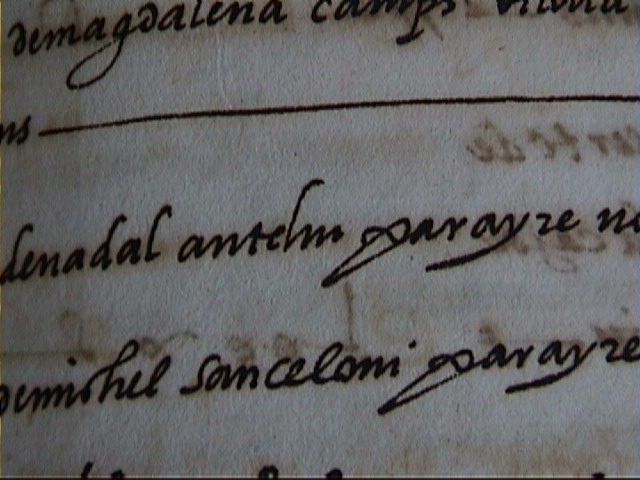 demagdalena camps viuda
ns
denadal antelm parayre
demichel sanceloni parayre